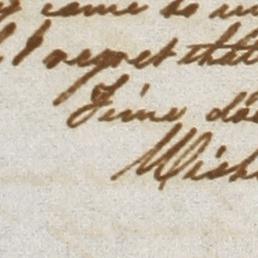 came to
I regret that
Time do
Wish